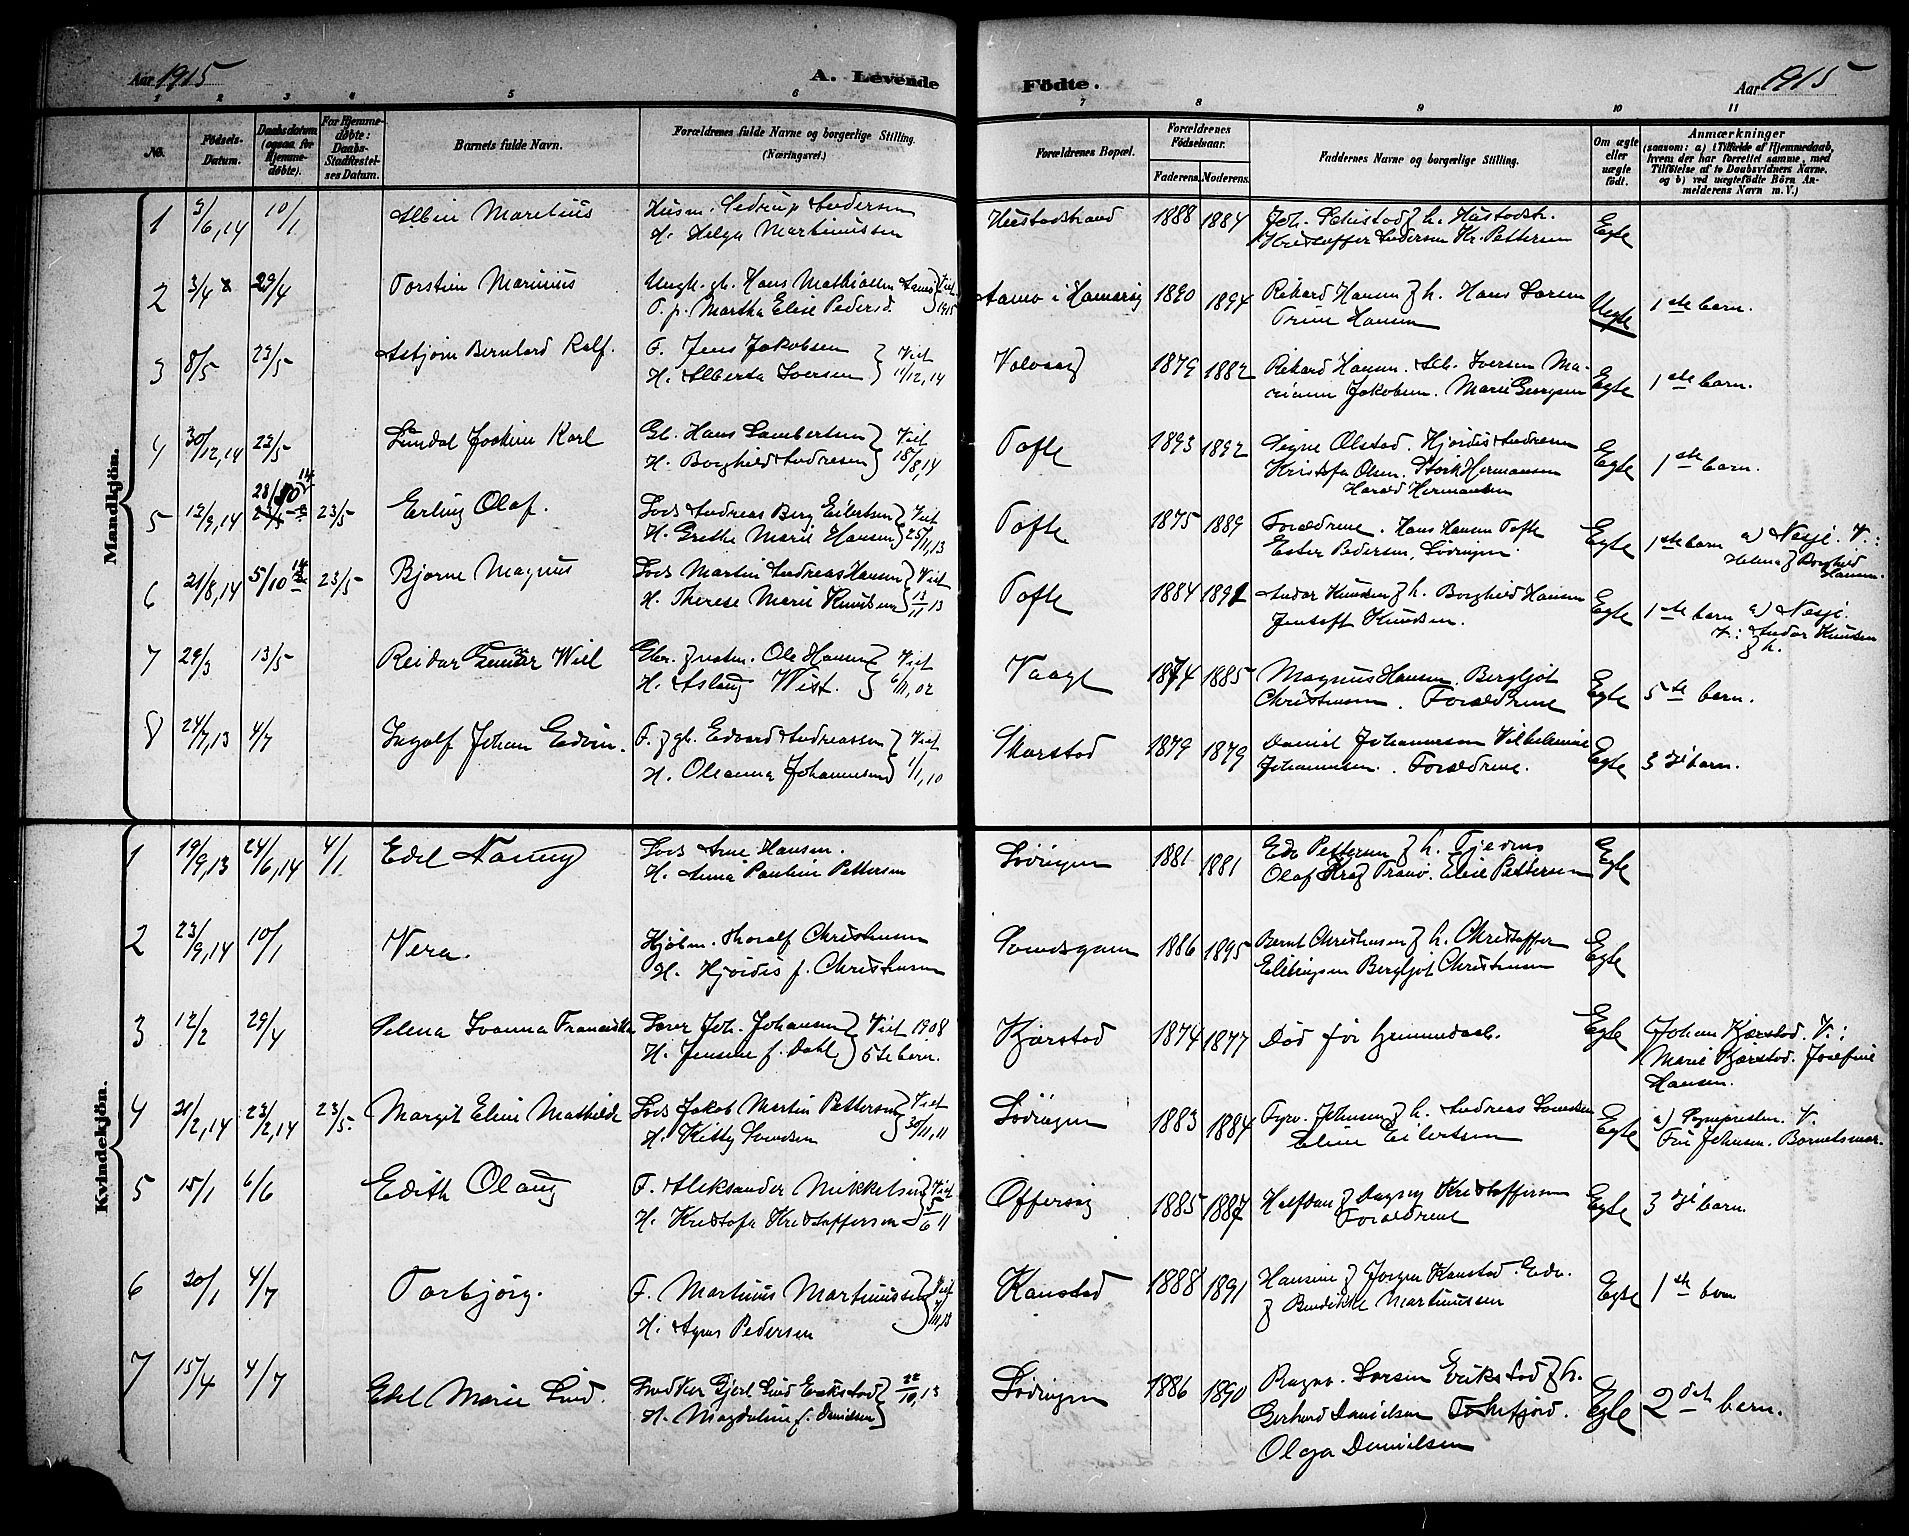 Aar 1915
A. Levende
Födte.
Aar 1915
1 2 3 4 5 6 7 8 9 10 11
No.
Födsels-
Datum.
Daabsdatum
(ogsaa for
Hjemme-
døbte).
For Hjemme-
døbte:
Daabs-
Stadfæstel-
ses Datum.
Barnets fulde Navn.
Forældrenes fulde Navne og borgerlige Stilling.
(Næringsvei.)
Forældrenes Bopæl.
Forældrenes
Födselsaar.
Faderens. Moderens.
Faddernes Navne og borgerlige Stilling.
Om ægte
eller
uægte
født.
Anmærkninger
(saasom: a) i Tilfælde af Hjemmedaab,
hvem der har forrettet samme, med
Tilföielse af to Daabsvidners Navne,
og b) ved uægtefødte Börn An-
melderens Navn m. V.)
Mandkjön.
1 3/6,14 10/1 Albin Maretius Husm. Pedersen
H. Helga Martinussen
Hustadstrand 1888 1884 Joh. h. Hustadstr.
Kristoffer Andersen Kr. Pettersen Egte
2 3/4 29/4 Torstein Marinius Ungk. gb. Hans Mathiassen
T. p. Martha Elise Pedersd. 1915
i Hamarøy 1890 1894 Rikard Hansen & h. Hans Larsen
Trine Hansen Uegte 1ste barn.
3 8/5 23/5 Asbjørn Bernhard Ralf. F. Jens Jakobsen Viet
H. Alberta Iversen 11/12,14
Volvaag 1879 1882 Rikard Hansen. Alb. Iversen Ma-
Jakobsen. Marie Georgsen Egte 1ste barn.
4 30/12,14 23/5 Sundal Joakim Karl Gb. Hans Lambertsen Viet
H. Borghild Andresen 18/8,14
Tofte 1893 1892 Signe Olstad. Hjørdis Andresen
Kristofa Olsen. Hermansen
Harald Hermansen Egte 1ste barn.
5 12/9,14 28/10 14 23/5 Erling Olaf. Lods Andreas Berg Eilertsen Viet
H. Grethe Marie Hansen 25/11,13
Tofte 1875 1889 Forældrene. Hans Hansen Tofte
Ester Pedersen, Lødingen. Egte 1ste barn a) Nesje. V.:
Helena & Borghild
Hansen.
6 21/8,14 5/10 14 23/5 Bjarne Magnus Lods Martin Andreas Hansen Viet
H. Therese Marie Knudsen 13/11 13
Tofte 1884 1891 Andor Knudsen & h. Borghild Hansen
Jentoft Knudsen. Egte 1ste barn a) Nesje.
V.: Andor Knudsen
& h.
7 29/3 13/5 Reidar Gunnar Wiel Gbr. Ole Hansen Viet
H. Aslaug Wist. 6/11,02
Vaagt 1874 1885 Magnus Hansen, Bergljot
Christensen. Forældrene Egte 5te barn.
8 24/7,13 4/7 Ingolf Johan Edvin. F. & gb. Edvard Andreassen Viet
H. Oleanna Johannesen 1/1,10
Skarstad 1879 1879 Daniel Johannesen Vilhelmine
Johannesen. Forældrene. Egte 3dje barn.
Kvindekjön.
1 19/9,13 24/6,14 4/1 Edel Nanny Lods Arne Hansen.
H. Anna Pauline Pettersen
Lødingen 1881 1881 Edv. Pettersen & h. Tjednes
Olaf Tranø. Elise Pettersen Egte
2 23/9,14 10/1 Vera. Hjølm. Thoralf Christensen
H. Hjørdis f. Christensen
1886 1895 Bernt Christensen & h. Christoffer
Ellingsen Bergljot Christensen Egte
3 12/2 29/4 Selena Ivanna Franciska Joh. Johansen Viet 1908
H. Jensine f. Dahl 5te barn.
Kjærstad 1874 1877 Død før hjemmedaab. Egte Johan Kjærstad. V.:
Marie Kjærstad. Josefine
Hansen.
4 21/2,14 23/2,14 23/5 Margit Eline Mathilde Lods Jakob Martin Pettersen Viet
H. Kitty Svendsen 30/11,11
Lødingen 1883 1884 Fyrv. Johnsen & h. Andreas Svendsen
Eline Eilertsen Egte a) Sognepresten. V.
Fru Johnsen. Barnets mor.
5 15/1 6/6 Edith Olaug F. Aleksander Mikkelsen Viet
H. Kristofa Kristoffersen 6 11
Offersøy 1885 1887 Halfdan & Dagny Kristoffersen
Forældrene Egte 3dje barn.
6 20/1 4/7 Torbjørg. F. Martinus Martinussen Viet
H. Agnes Pedersen
Kanstad 1888 1891 Hansine & Jørgen Kanstad. Edv.
& Bendikke Martinussen Egte 1ste barn
7 15/4 4/7 Edel Marie Lind. Snedker Hjerl. Lind Erikstad 22/10,13
H. Magdaline f. Danielsen
Lødingen 1886 1890 Ragnv. Larsen Erikstad & h.
Gerhard Danielsen Tokefjord.
Olga Danielsen Egte 2det barn.